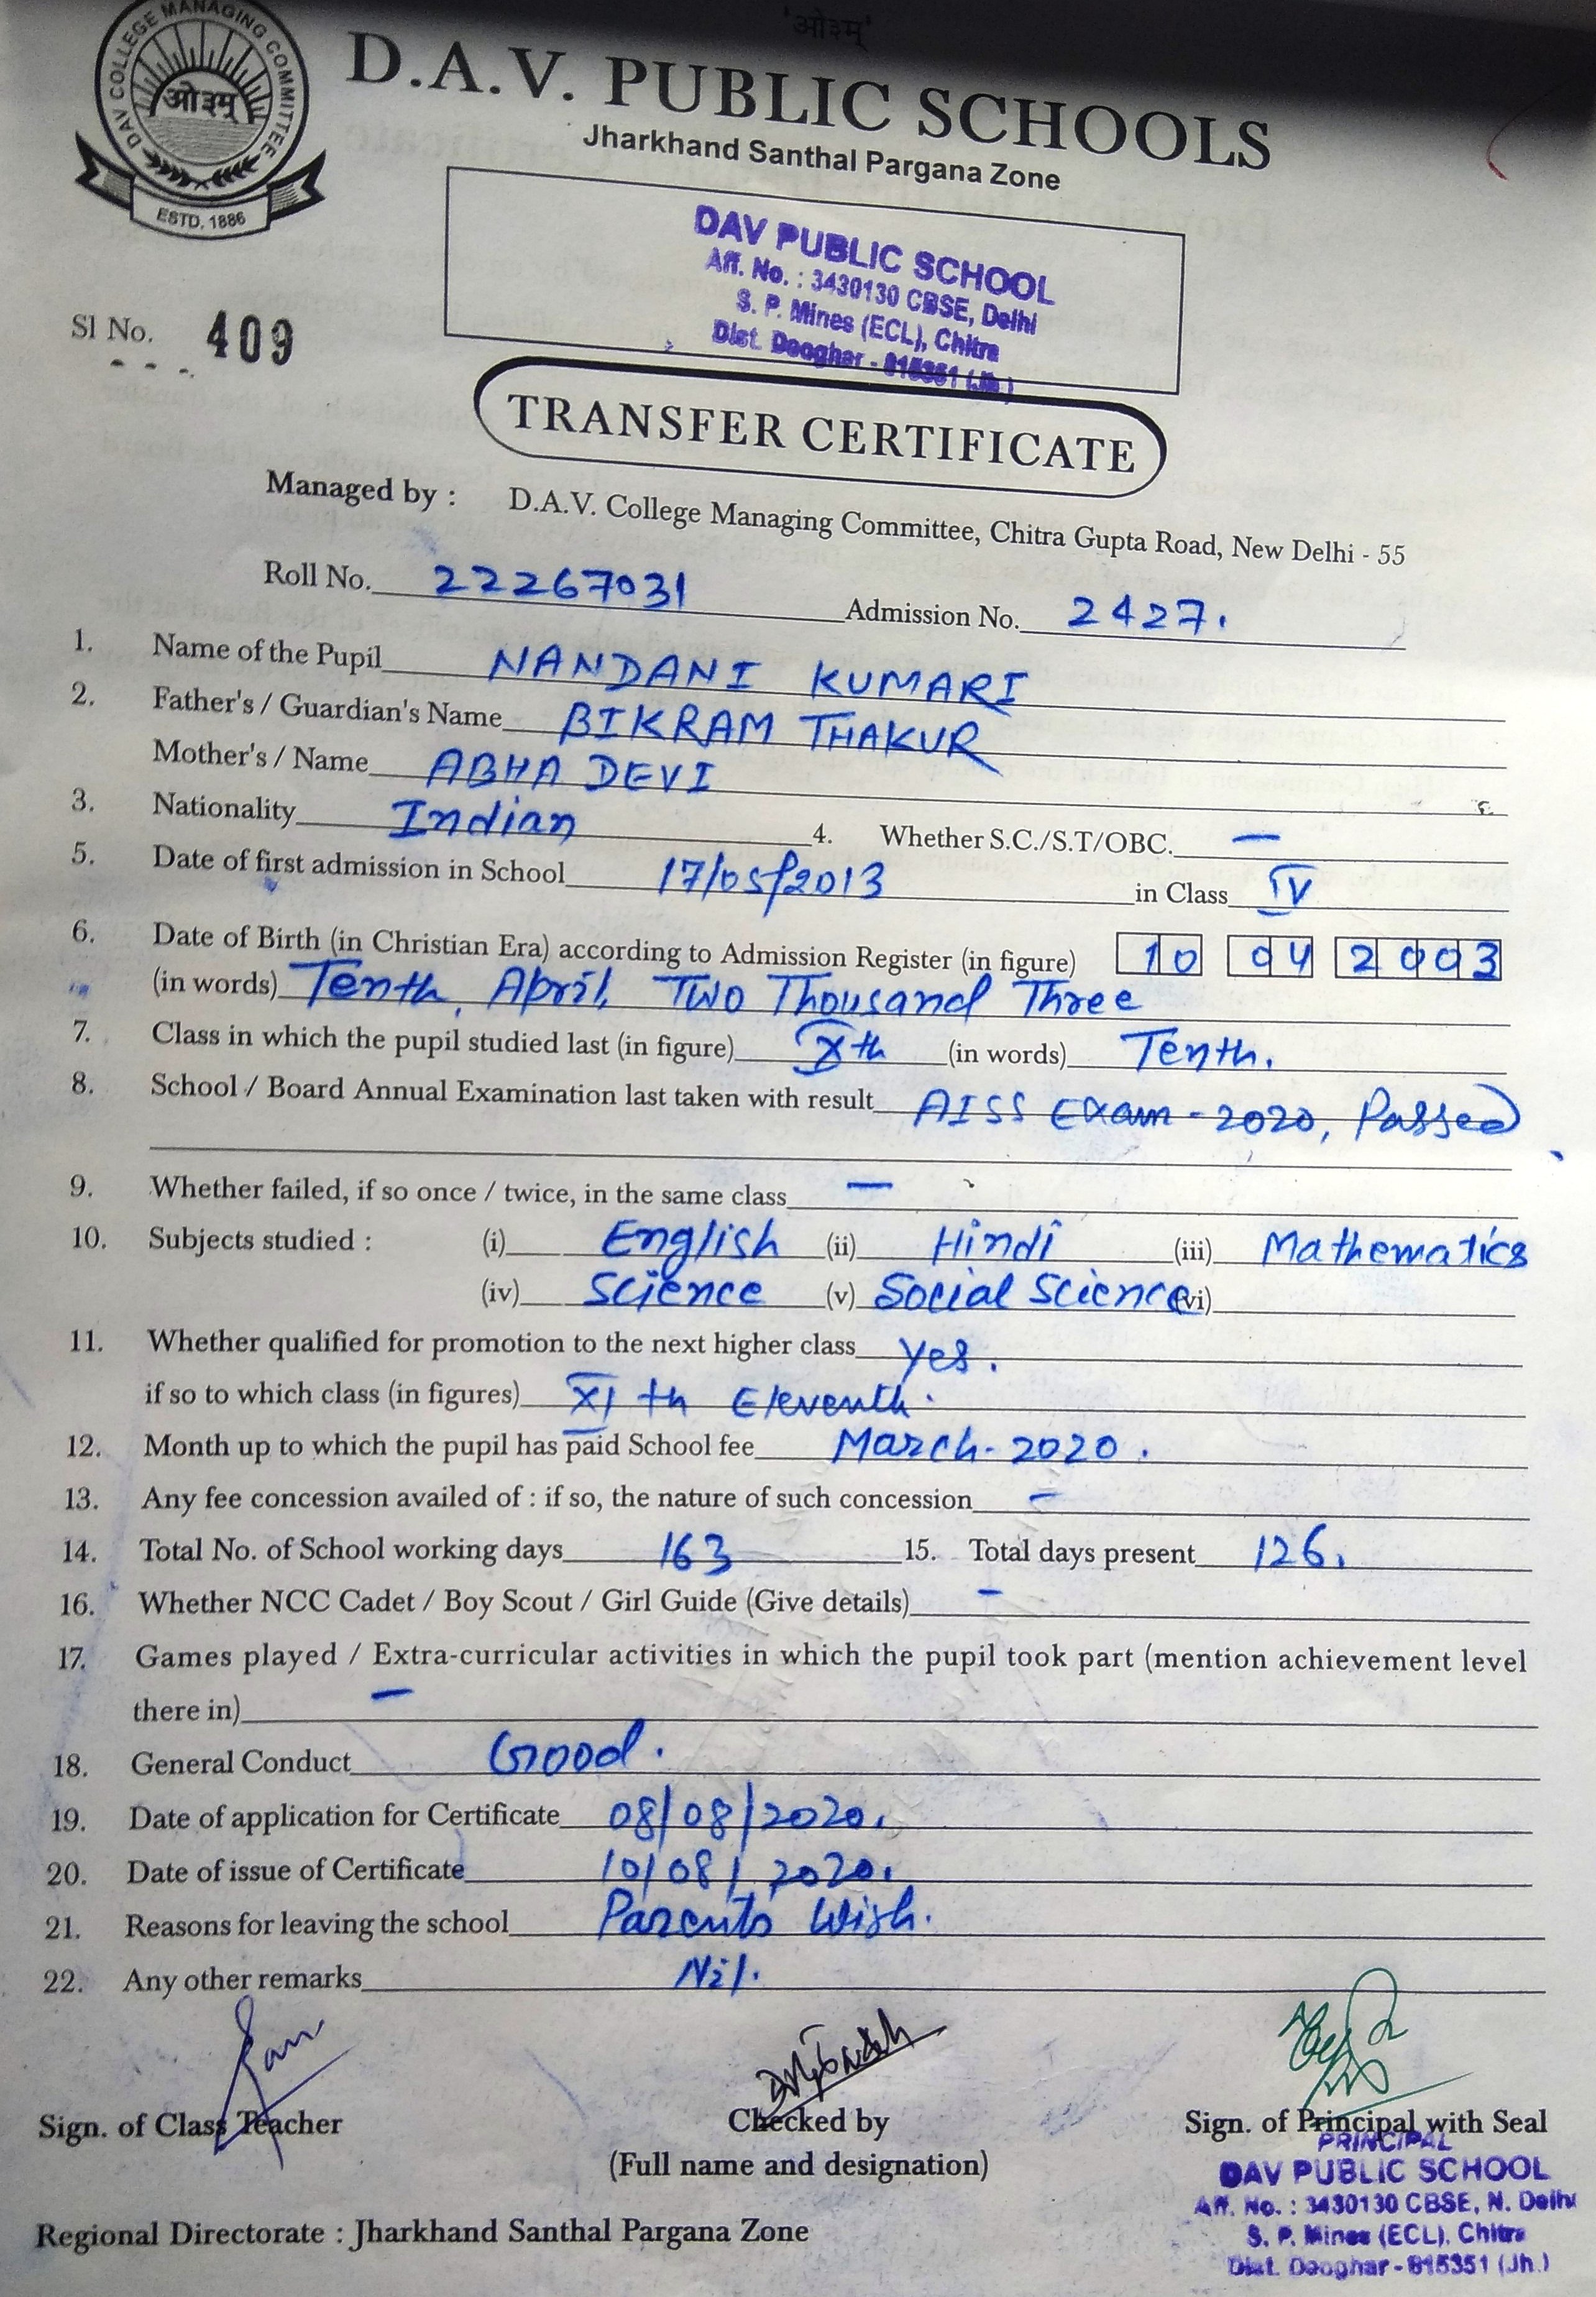 'ओ३म्'
DAV COLLEGE MANAGING COMMITTEE
ओ३म्
ESTD. 1886
D.A.V. PUBLIC SCHOOLS
Jharkhand Santhal Pargana Zone
DAV PUBLIC SCHOOL
Aff. No. : 3430130 CBSE, Delhi
S. P. Mines (ECL), Chitra
Dist. Deoghar - 815351 (Jh.)
Sl No. 409
TRANSFER CERTIFICATE
Managed by : D.A.V. College Managing Committee, Chitra Gupta Road, New Delhi - 55
Roll No. 22267031 Admission No. 2427.
1. Name of the Pupil NANDANI KUMARI
2. Father's / Guardian's Name BIKRAM THAKUR
Mother's / Name ABHA DEVI
3. Nationality Indian 4. Whether S.C./S.T/OBC. —
5. Date of first admission in School 17/05/2013 in Class IV
6. Date of Birth (in Christian Era) according to Admission Register (in figure) 10 04 2003
(in words) Tenth, April, Two Thousand Three
7. Class in which the pupil studied last (in figure) Xth (in words) Tenth.
8. School / Board Annual Examination last taken with result AISS Exam - 2020, Passed
9. Whether failed, if so once / twice, in the same class —
10. Subjects studied : (i) English (ii) Hindi (iii) Mathematics
(iv) Science (v) Social Science (vi)
11. Whether qualified for promotion to the next higher class yes.
if so to which class (in figures) XI th Eleventh.
12. Month up to which the pupil has paid School fee March - 2020.
13. Any fee concession availed of : if so, the nature of such concession —
14. Total No. of School working days 163 15. Total days present 126.
16. Whether NCC Cadet / Boy Scout / Girl Guide (Give details) —
17. Games played / Extra-curricular activities in which the pupil took part (mention achievement level
there in) —
18. General Conduct Good.
19. Date of application for Certificate 08/08/2020.
20. Date of issue of Certificate 10/08/2020.
21. Reasons for leaving the school Parents Wish.
22. Any other remarks Nil.
Sign. of Class Teacher Checked by Sign. of Principal with Seal
(Full name and designation)
PRINCIPAL
DAV PUBLIC SCHOOL
Aff. No. : 3430130 CBSE, N. Delhi
S. P. Mines (ECL), Chitra
Dist. Deoghar - 815351 (Jh.)
Regional Directorate : Jharkhand Santhal Pargana Zone